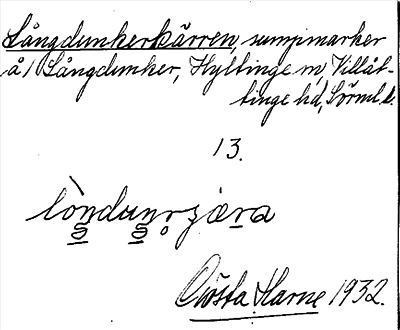 Långdunkerkärren, sumpmarker
å / Långdunker, Hyltinge sn, Villåt-
tinge hd, Sörml. l.
13.
lòndunrzæra
Gösta Harne 1932.